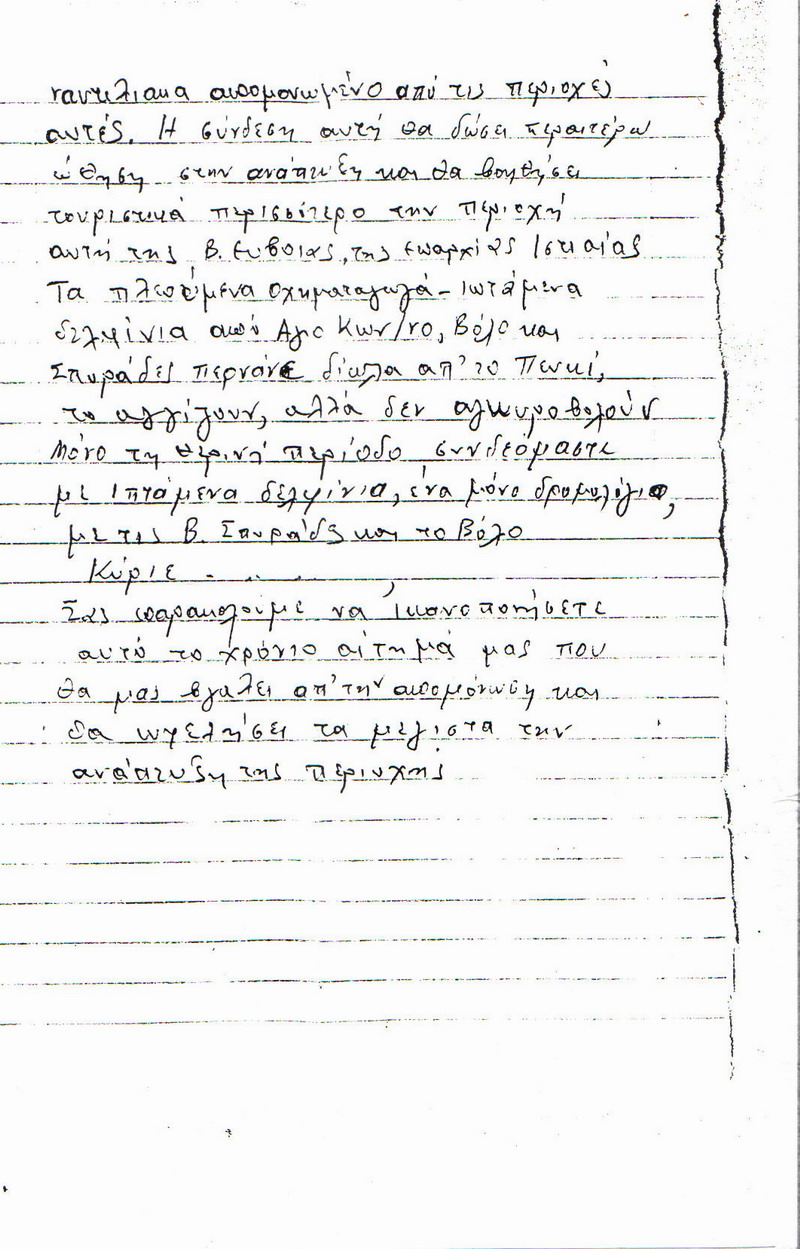 ναυτιλιακα απομονωμένο από τις περιοχές
αυτές. Η σύνδεση αυτή θα δώσει περαιτέρω
ώθηση στην ανάπτυξη και θα βοηθήσει
τουριστικά περισσότερο την περιοχή
αυτή της Β. Ευβοιας, της Επαρχίας Ιστιαίας
Τα πλεούμενα οχηματαγωγά - Ιπτάμενα
δελφίνια από Αγιο Κων/νο, Βόλο και
Σποράδες περνάνε δίπλα απ' το Πευκί,
το αγγίζουν, αλλά δεν αγκυροβολούν
Μόνο τη θερινή περίοδο συνδεόμαστε
με Ιπτάμενα δελφίνια, ένα μόνο δρομολόγιο,
με τις Β. Σποράδες και το Βόλο
Κύριε - . . . . . ,
Σας παρακαλούμε να ικανοποιήσετε
αυτό το χρόνιο αίτημά μας που
θα μας βγάλει απ' την απομόνωση και
θα ωφελήσει τα μέγιστα την
ανάπτυξη της περιοχής